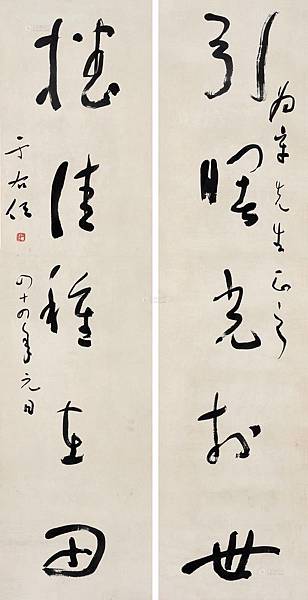 引曙光於世
為先生正之
播佳種在田
于右任
四十四年元日